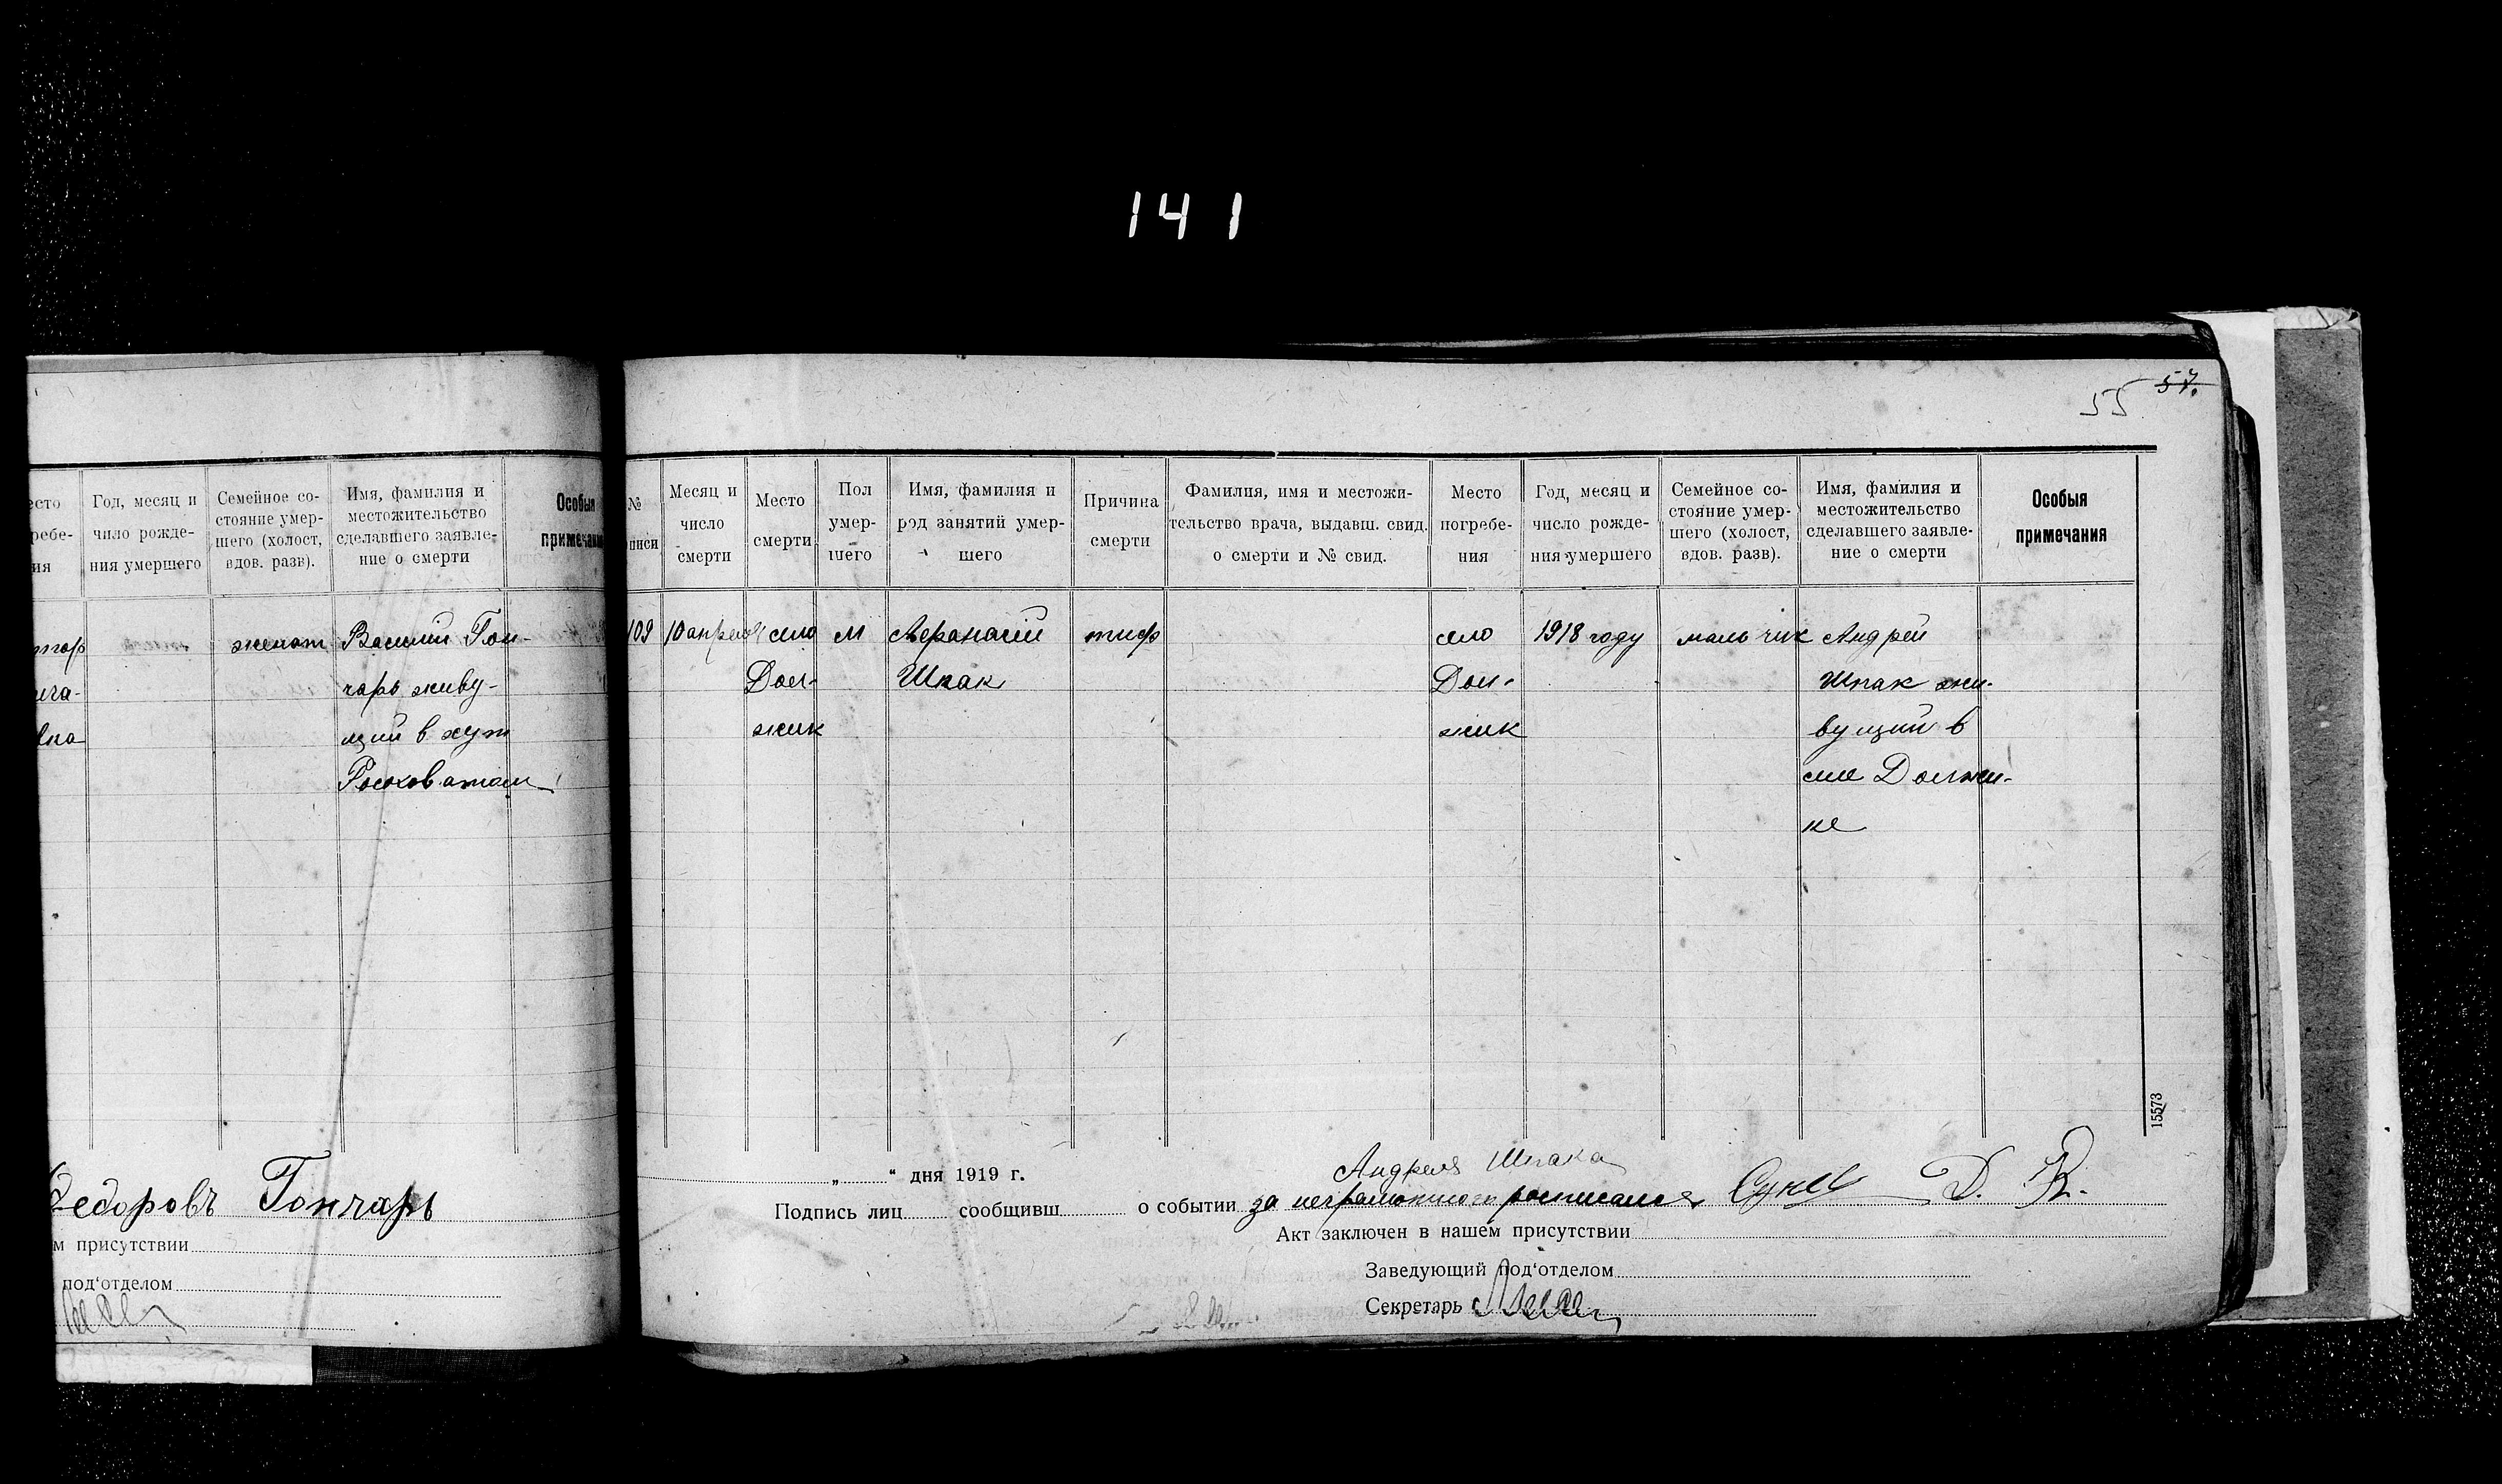 141
55 57.
есто
ребе-
ия
Год, месяц и
чило рожде-
ния умершего
Семейное со-
стояние умер-
шего (холост,
вдов. разв).
Имя, фамилия и
местожительство
сделавшего заявле-
ние о смерти
Особыя
примечания
женат
Василий Гон-
чарь живу-
щий в хут
Федоровъ Гончарь
м присутствии
под'отделом
№
писи
Месяц и
число
смерти
Место
смерти
Пол
умер-
шего
Имя, фамилия и
род занятий умер-
шего
Причина
смерти
Фамилия, имя и местожи-
тельство врача, выдавш. свид.
о смерти и № свид.
Место
погребе-
ния
Год, месяц и
число рожде-
ния умершего
Семейное со-
стояние умер-
шего (холост,
вдов. разв).
Имя, фамилия и
местожительство
сделавшего заявле-
ние о смерти
Особыя
примечания
109
10 апреля
село
Дол-
жик
М
Афанасий
Шпак
тиф
село
Дол-
жик
1918 году
мальчик
Андрей
Шпак жи-
вущий в
селе Должи-
ке
15573
„ “ дня 1919 г.
Андрея Шпака
Подпись лиц сообщивш о событии за неграмотного росписался
Акт заключен в нашем присутствии
Заведующий под'отделом
Секретарь